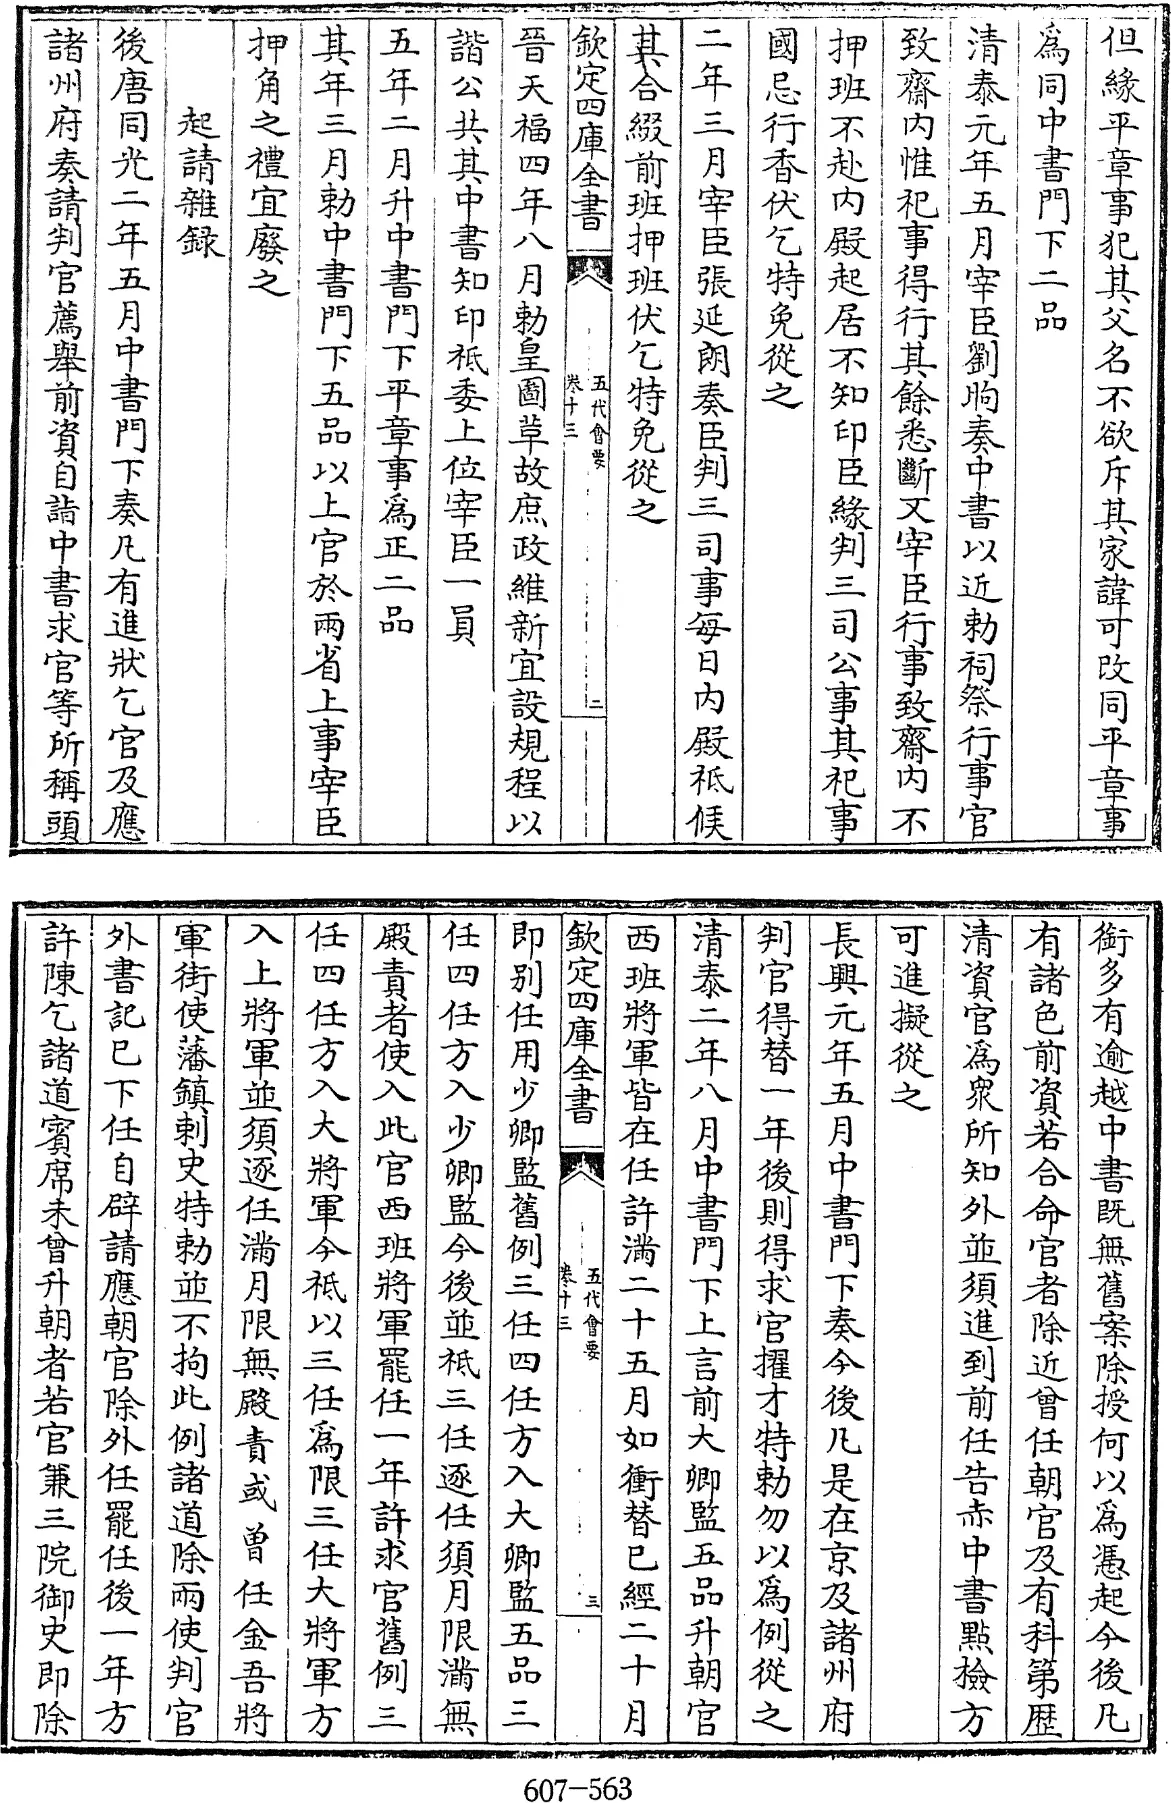 但緣平章事犯其父名不欲斥其家諱可改同平章事
爲同中書門下二品
清泰元年五月宰臣劉昫奏中書以近勅祠祭行事官
致齋内惟祀事得行其餘悉斷又宰臣行事致齋内不
押班不赴内殿起居不知印臣緣判三司公事其祀事
國忌行香伏乞特免從之
二年三月宰臣張延朗奏臣判三司事每日内殿祇候
其合綴前班押班伏乞特免從之
欽定四庫全書
五代會要
卷十三
二
晉天福四年八月勅皇圖草故庶政維新宜設規程以
諧公共其中書知印祇委上位宰臣一員
五年二月升中書門下平章事爲正二品
其年三月勅中書門下五品以上官於兩省上事宰臣
押角之禮宜廢之
起請雜録
後唐同光二年五月中書門下奏凡有進狀乞官及應
諸州府奏請判官薦舉前資自詣中書求官等所稱頭
銜多有逾越中書既無舊案除授何以爲憑起今後凡
有諸色前資若合命官者除近曾任朝官及有科第歷
清資官爲衆所知外並須進到前任告赤中書點檢方
可進擬從之
長興元年五月中書門下奏今後凡是在京及諸州府
判官得替一年後則得求官擢才特勅勿以爲例從之
清泰二年八月中書門下上言前大卿監五品升朝官
西班將軍皆在任許滿二十五月如衝替已經二十月
欽定四庫全書
五代會要
卷十三
三
即别任用少卿監舊例三任四任方入大卿監五品三
任四任方入少卿監今後並祇三任逐任須月限滿無
殿責者使入此官西班將軍罷任一年許求官舊例三
任四任方入大將軍今祇以三任爲限三任大將軍方
入上將軍並須逐任滿月限無殿責或曾任金吾將
軍街使藩鎮刺史特勅並不拘此例諸道除兩使判官
外書記已下任自辟請應朝官除外任罷任後一年方
許陳乞諸道賓席未曾升朝者若官兼三院御史即除
607-563